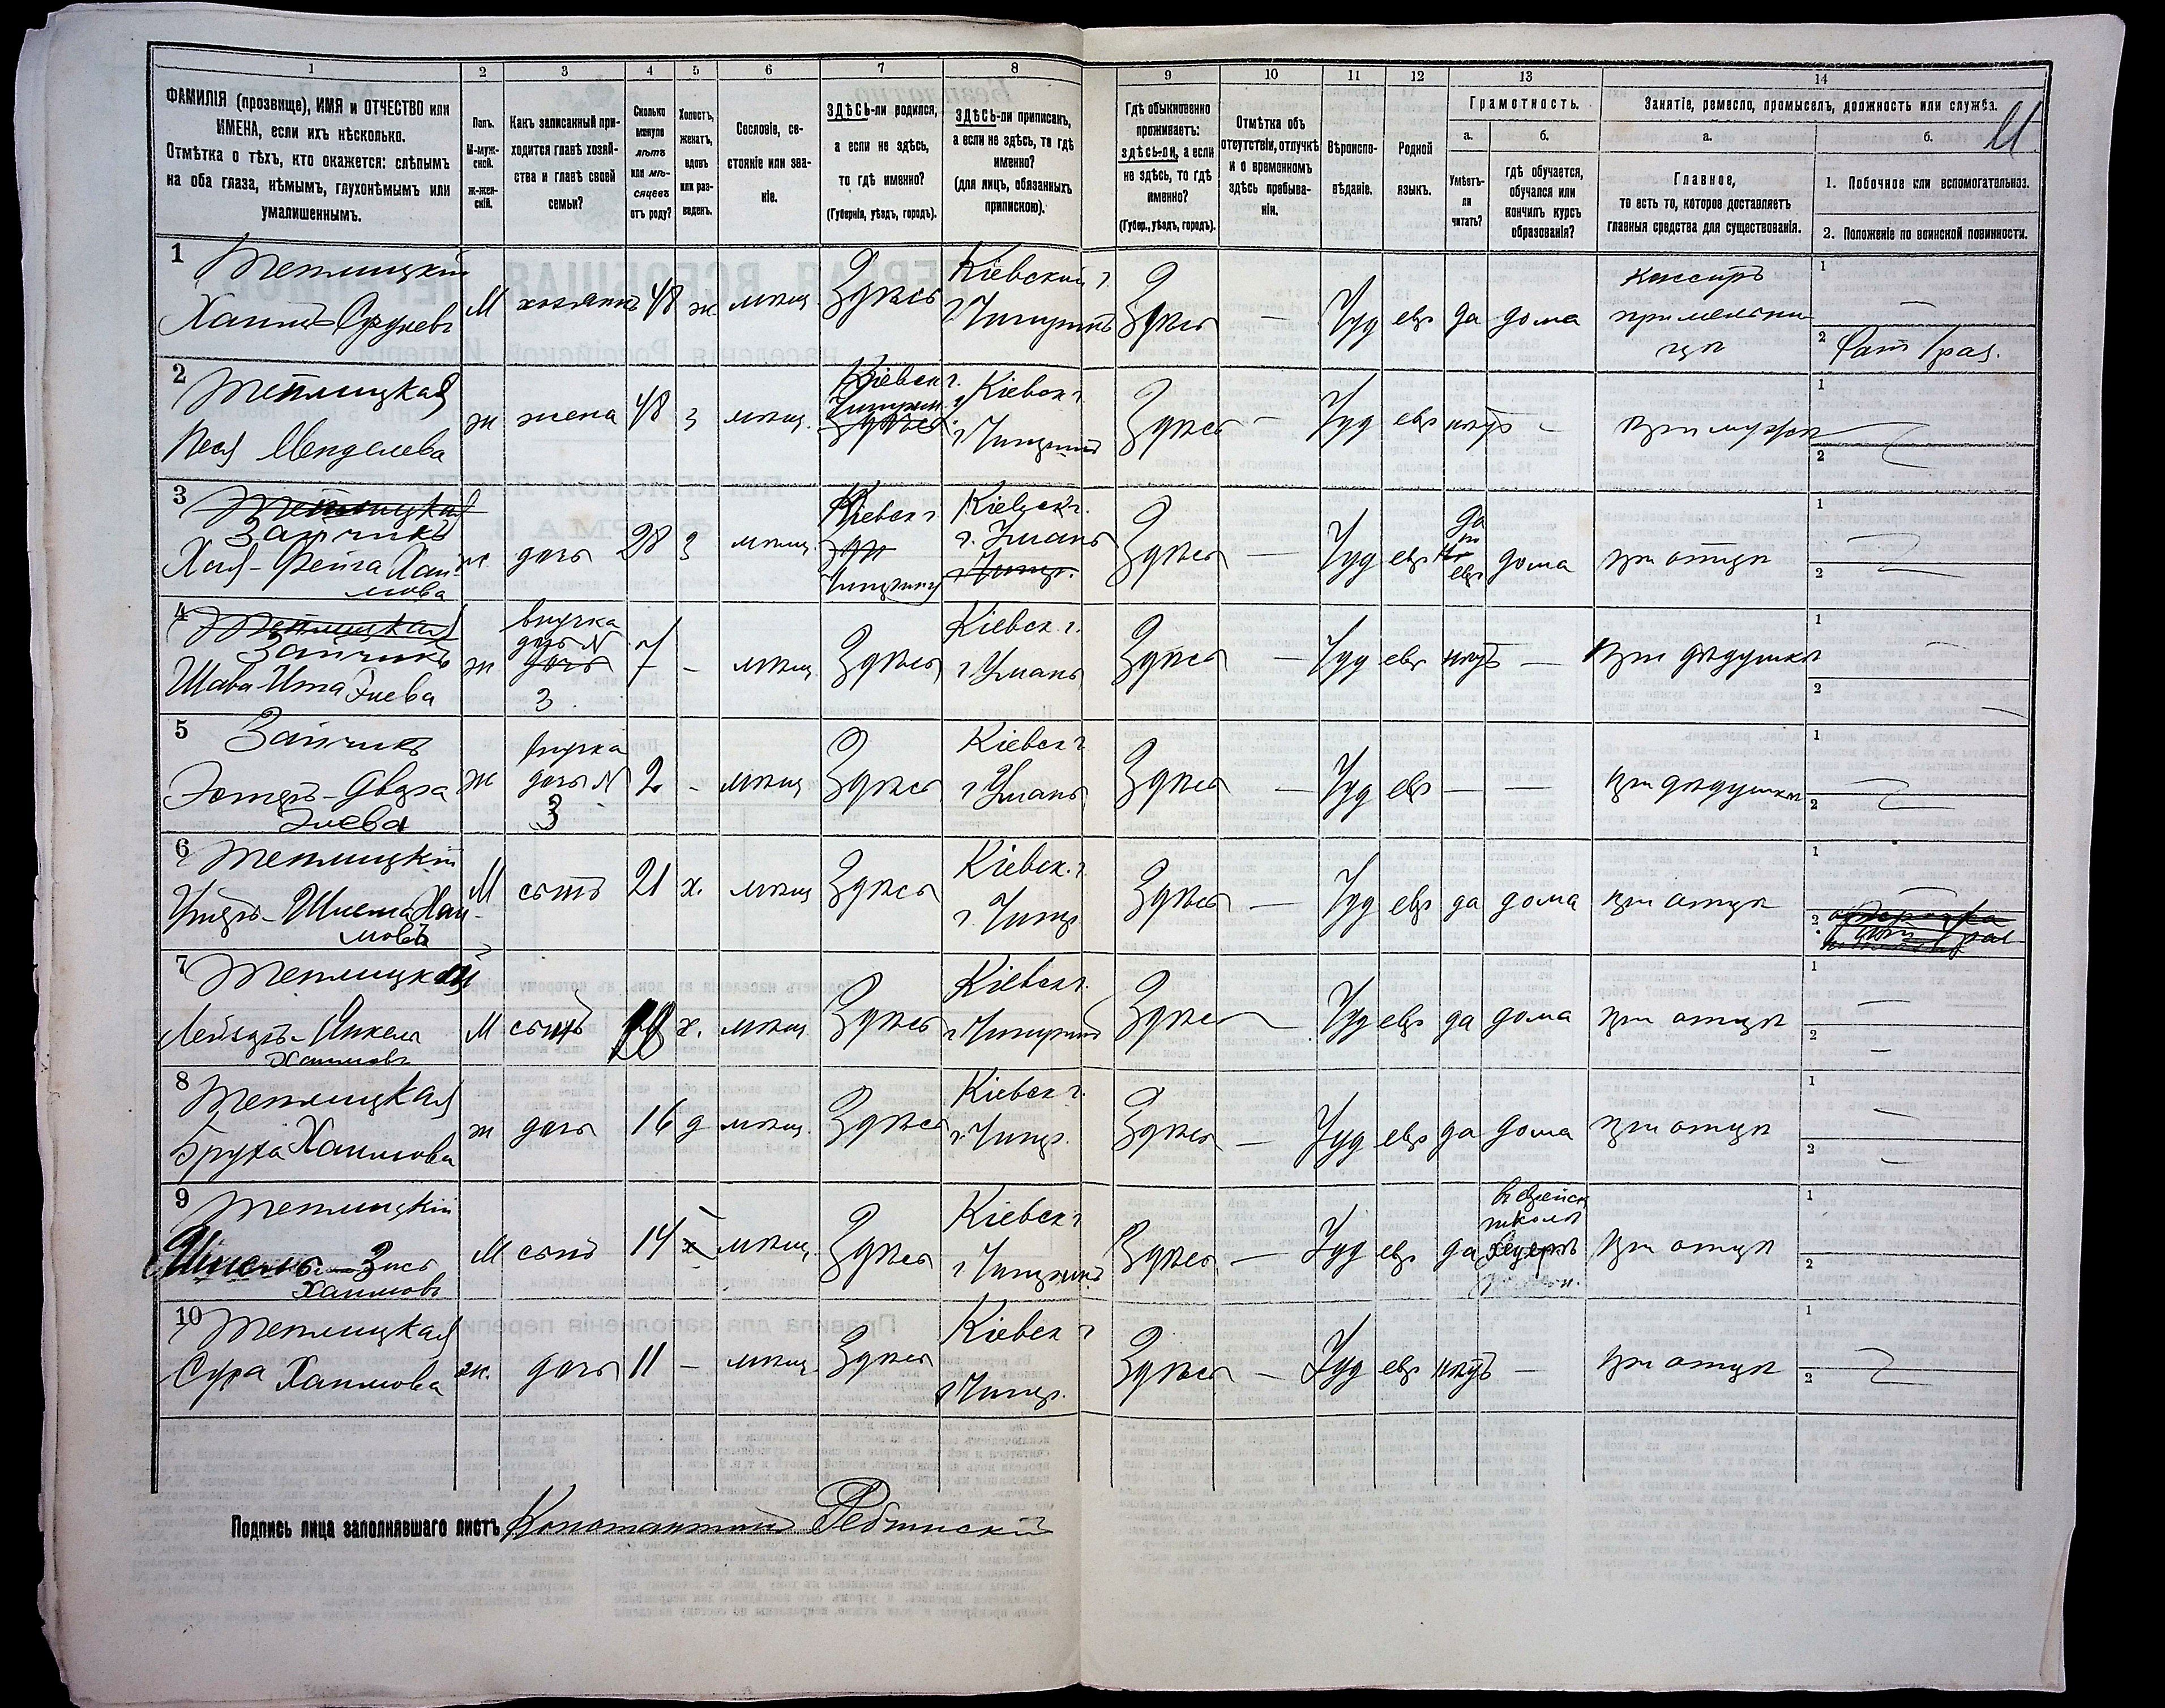 1 2 3 4 5 6 7 8 9 10 11 12 13 14
ФАМИЛІЯ (прозвище), ИМЯ и ОТЧЕСТВО или
ИМЕНА, если ихъ нѣсколько.
Отмѣтка о тѣхъ, кто окажется: слѣпымъ
на оба глаза, нѣмымъ, глухонѣмымъ или
умалишеннымъ.
Полъ.
М-муж-
ской.
ж-жен-
скій.
Какъ записанный при-
ходится главѣ хозяй-
ства и главѣ своей
семьи?
Сколько
минуло
лѣтъ
или мѣ-
сяцевъ
отъ роду?
Холостъ,
женатъ,
вдовъ
или раз-
веденъ.
Сословіе, со-
стояніе или зва-
ніе.
ЗДѢСЬ-ли родился,
а если не здѣсь,
то гдѣ именно?
(Губернія, уѣздъ, городъ).
ЗДѢСЬ-ли приписанъ,
а если не здѣсь, то гдѣ
именно?
(для лицъ, обязанныхъ
припискою).
Гдѣ обыкновенно
проживаетъ:
здѣсь-ли, а если
не здѣсь, то гдѣ
именно?
(Губер., уѣздъ, городъ).
Отмѣтка объ
отсутствіи, отлучкѣ
и о временномъ
здѣсь пребыва-
ніи.
Вѣроиспо-
вѣданіе.
Родной
языкъ.
Грамотность.
а.
Умѣетъ-
ли
читать?
б.
гдѣ обучается,
обучался или
кончилъ курсъ
образованія?
Занятіе, ремесло, промыселъ, должность или служба.
а.
Главное,
то есть то, которое доставляетъ
главныя средства для существованія.
б.
1. Побочное или вспомогательное.
2. Положеніе по воинской повинности.
11
1 Теплицкій
Хаимъ Срулевъ М хозяинъ 48 ж. мѣщ. Здѣсь Кіевской г. г. Чигиринъ Здѣсь — Іуд евр да дома Кассиръ при мельницѣ 1 — 2 Рат 1 раз.
2 Теплицкая
Песя Менделева ж жена 48 з мѣщ. Кіевск г. Чигирин. Здѣсь Кіевск г. г. Чигиринъ Здѣсь — Іуд евр нѣтъ — при мужѣ 1 2
3 Теплицкая
Зайчикъ
Хая-Фейга Хаи-
мова ж дочь 28 з мѣщ. Кіевск г Чигирину Кіевск г. г. Умань г. Чигир. Здѣсь — Іуд евр да евр дома при отцѣ 1 2
4 Теплицкая
Зайчикъ
Шава-Ита Элева ж внучка дочь N дочь 3 7 — мѣщ Здѣсь Кіевск. г. г. Умань Здѣсь — Іуд евр нѣтъ — При дѣдушкѣ 1 — 2 —
5 Зайчикъ
Эстеръ-Двера
Элева ж дочь N 3 2 — мѣщ Здѣсь Кіевск г г Умань Здѣсь — Іуд евр — — при дѣдушкѣ 1 2
6 Теплицкій
Хаи-
мовъ М сынъ 21 х. мѣщ Здѣсь Кіевск. г. г. Чигир Здѣсь — Іуд евр да дома при отцѣ 1 — 2
7 Теплицкій
Лейзеръ-Янкель
Хаимовъ М сынъ х. мѣщ. Здѣсь Кіевск г. г. Чигиринъ Здѣсь — Іуд евр да дома при отцѣ 1 — 2 —
8 Теплицкая
Бруха Хаимова ж дочь 16 д мѣщ. Здѣсь Кіевск г. г. Чигир. Здѣсь — Іуд евр да дома при отцѣ 1 — 2 —
9 Теплицкій
Зись
Хаимовъ М сынъ 14 х мѣщ. Здѣсь Кіевск г г Чигиринъ Здѣсь — Іуд евр да школѣ хедеръ при отцѣ 1 2
10 Теплицкая
Сура Хаимова ж. дочь 11 — мѣщ. Здѣсь Кіевск г г Чигир. Здѣсь — Іуд евр нѣтъ — при отцѣ 1 2
Подпись лица заполнявшаго листъ Константинъ Ребинскій